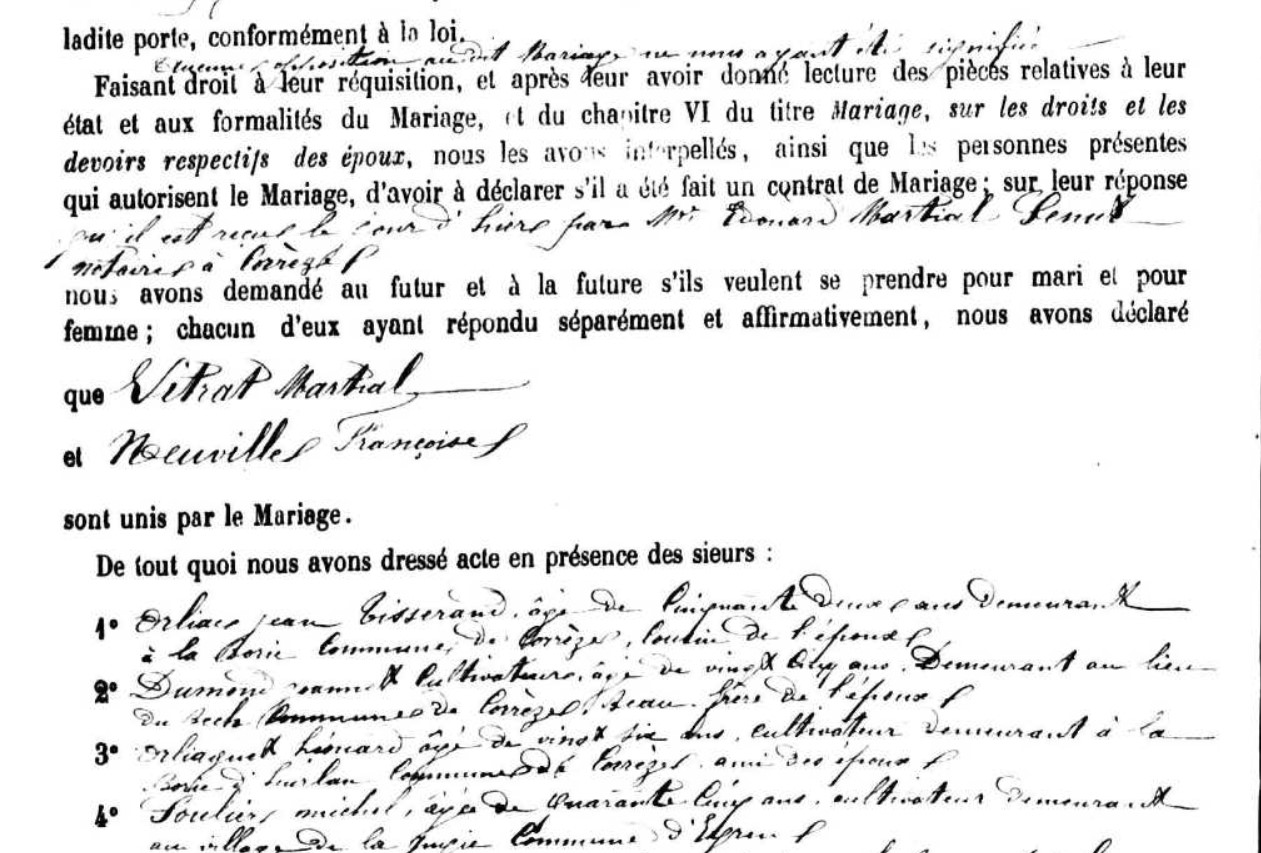 ladite porte, conformément à la loi.
opposition audit Mariage ne nous ayant été signifiée
Faisant droit à leur réquisition, et après leur avoir donné lecture des pièces relatives à leur
état et aux formalités du Mariage, et du chapitre VI du titre Mariage, sur les droits et les
devoirs respectifs des époux, nous les avons interpellés, ainsi que les personnes présentes
qui autorisent le Mariage, d'avoir à déclarer s'il a été fait un contrat de Mariage; sur leur réponse
qu'il est reçu le jour d'hier par Mr Edouard Martial
notaire à Corrèze
nous avons demandé au futur et à la future s'ils veulent se prendre pour mari et pour
femme; chacun d'eux ayant répondu séparément et affirmativement, nous avons déclaré
que Vitrat Martial
et Neuville Françoise
sont unis par le Mariage.
De tout quoi nous avons dressé acte en présence des sieurs :
1° Orliac jean Tisserand, âgé de Cinquante deux ans demeurant
à la Borie Commune de Corrèze, Cousin de l'époux
2° Dumond Cultivateur, âgé de vingt Cinq ans, Demeurant au lieu
du Commune de Corrèze, Beau frère de l'époux
3° Orliaguet Léonard âgé de vingt six ans, cultivateur demeurant à la
Borie Commune de Corrèze ami des époux
4° michel, âgé de quarante Cinq ans, cultivateur demeurant
au village de la Commune d'Eyren